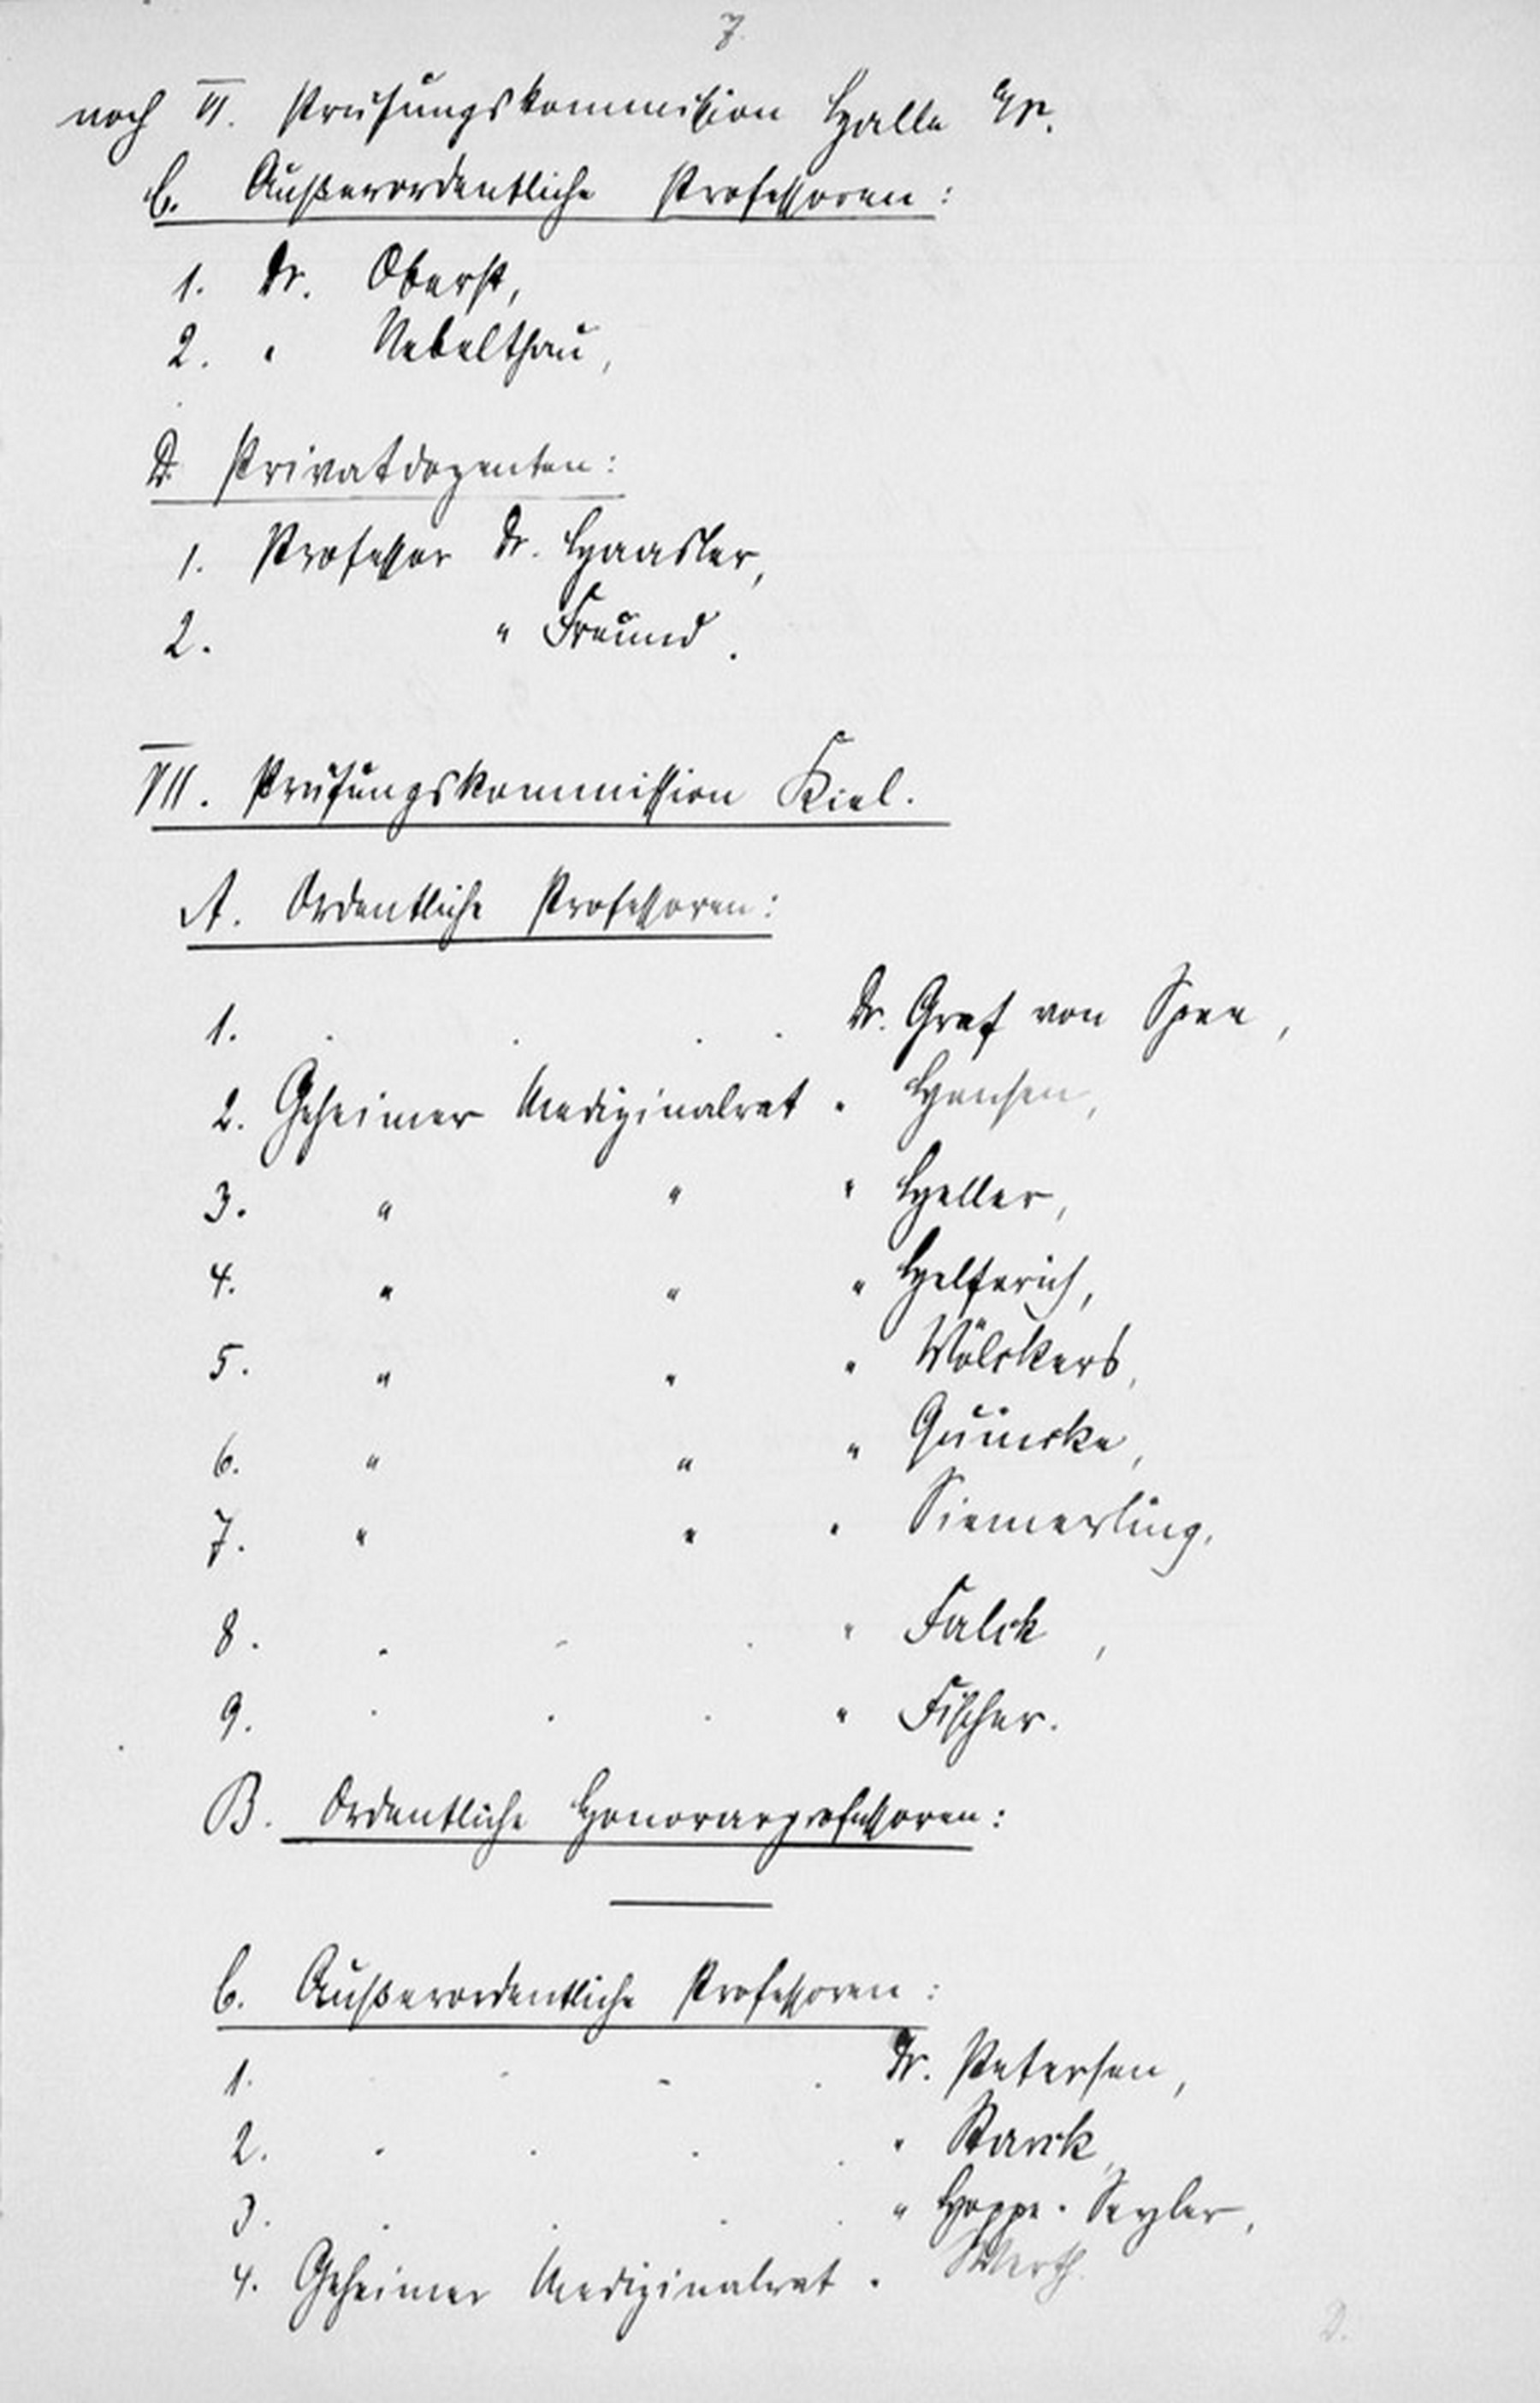 7.
noch VI. Prüfungskommission Halle a/S.
C. Außerordentliche Professoren:
1. Dr. Oberst,
2. " Nebelthau,
D. Privatdozenten:
1. Professor Dr. Haasler,
2. " Freund.
VII. Prüfungskommission Kiel.
A. Ordentliche Professoren:
1. . . . . Dr. Graf von Spee,
2. Geheimer Medizinalrat " Hensen,
3. " " " Heller,
4. " " " Helferich,
5. " " " Völckers,
6. " " " Quincke,
7. " " " Siemerling,
8. . . . " Falck,
9. . . . " Fischer.
B. Ordentliche Honorarprofessoren:
C. Außerordentliche Professoren:
1. . . . Dr. Petersen,
2. . . . . " Starck,
3. . . . . " Hoppe-Seyler,
4. Geheimer Medizinalrat " Werth.
D.